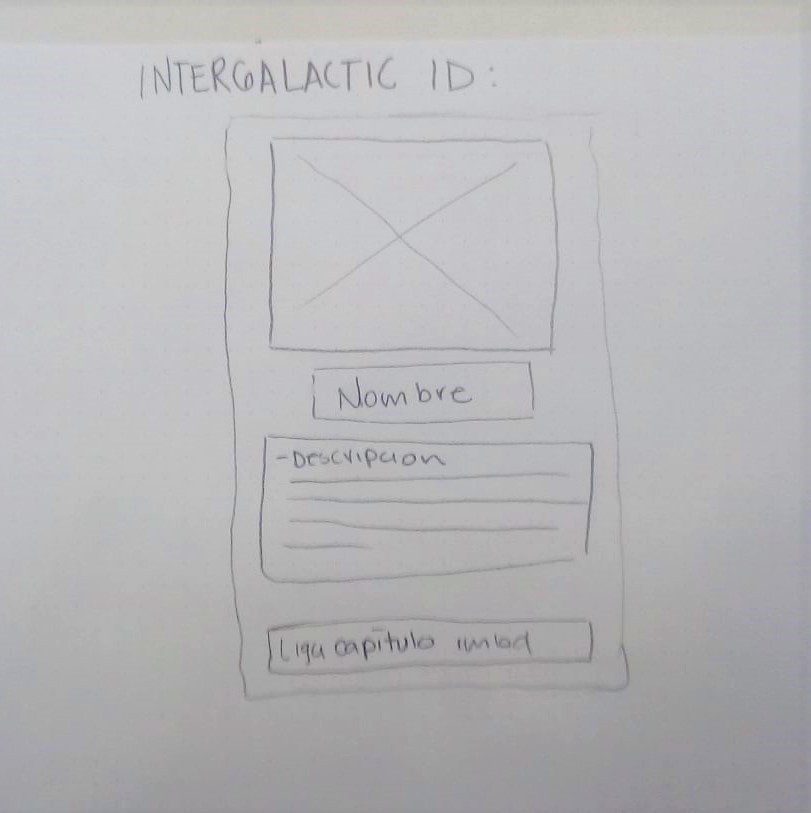 INTERGALACTIC ID:
Nombre
-Descripcion
Liga capítulo imbd